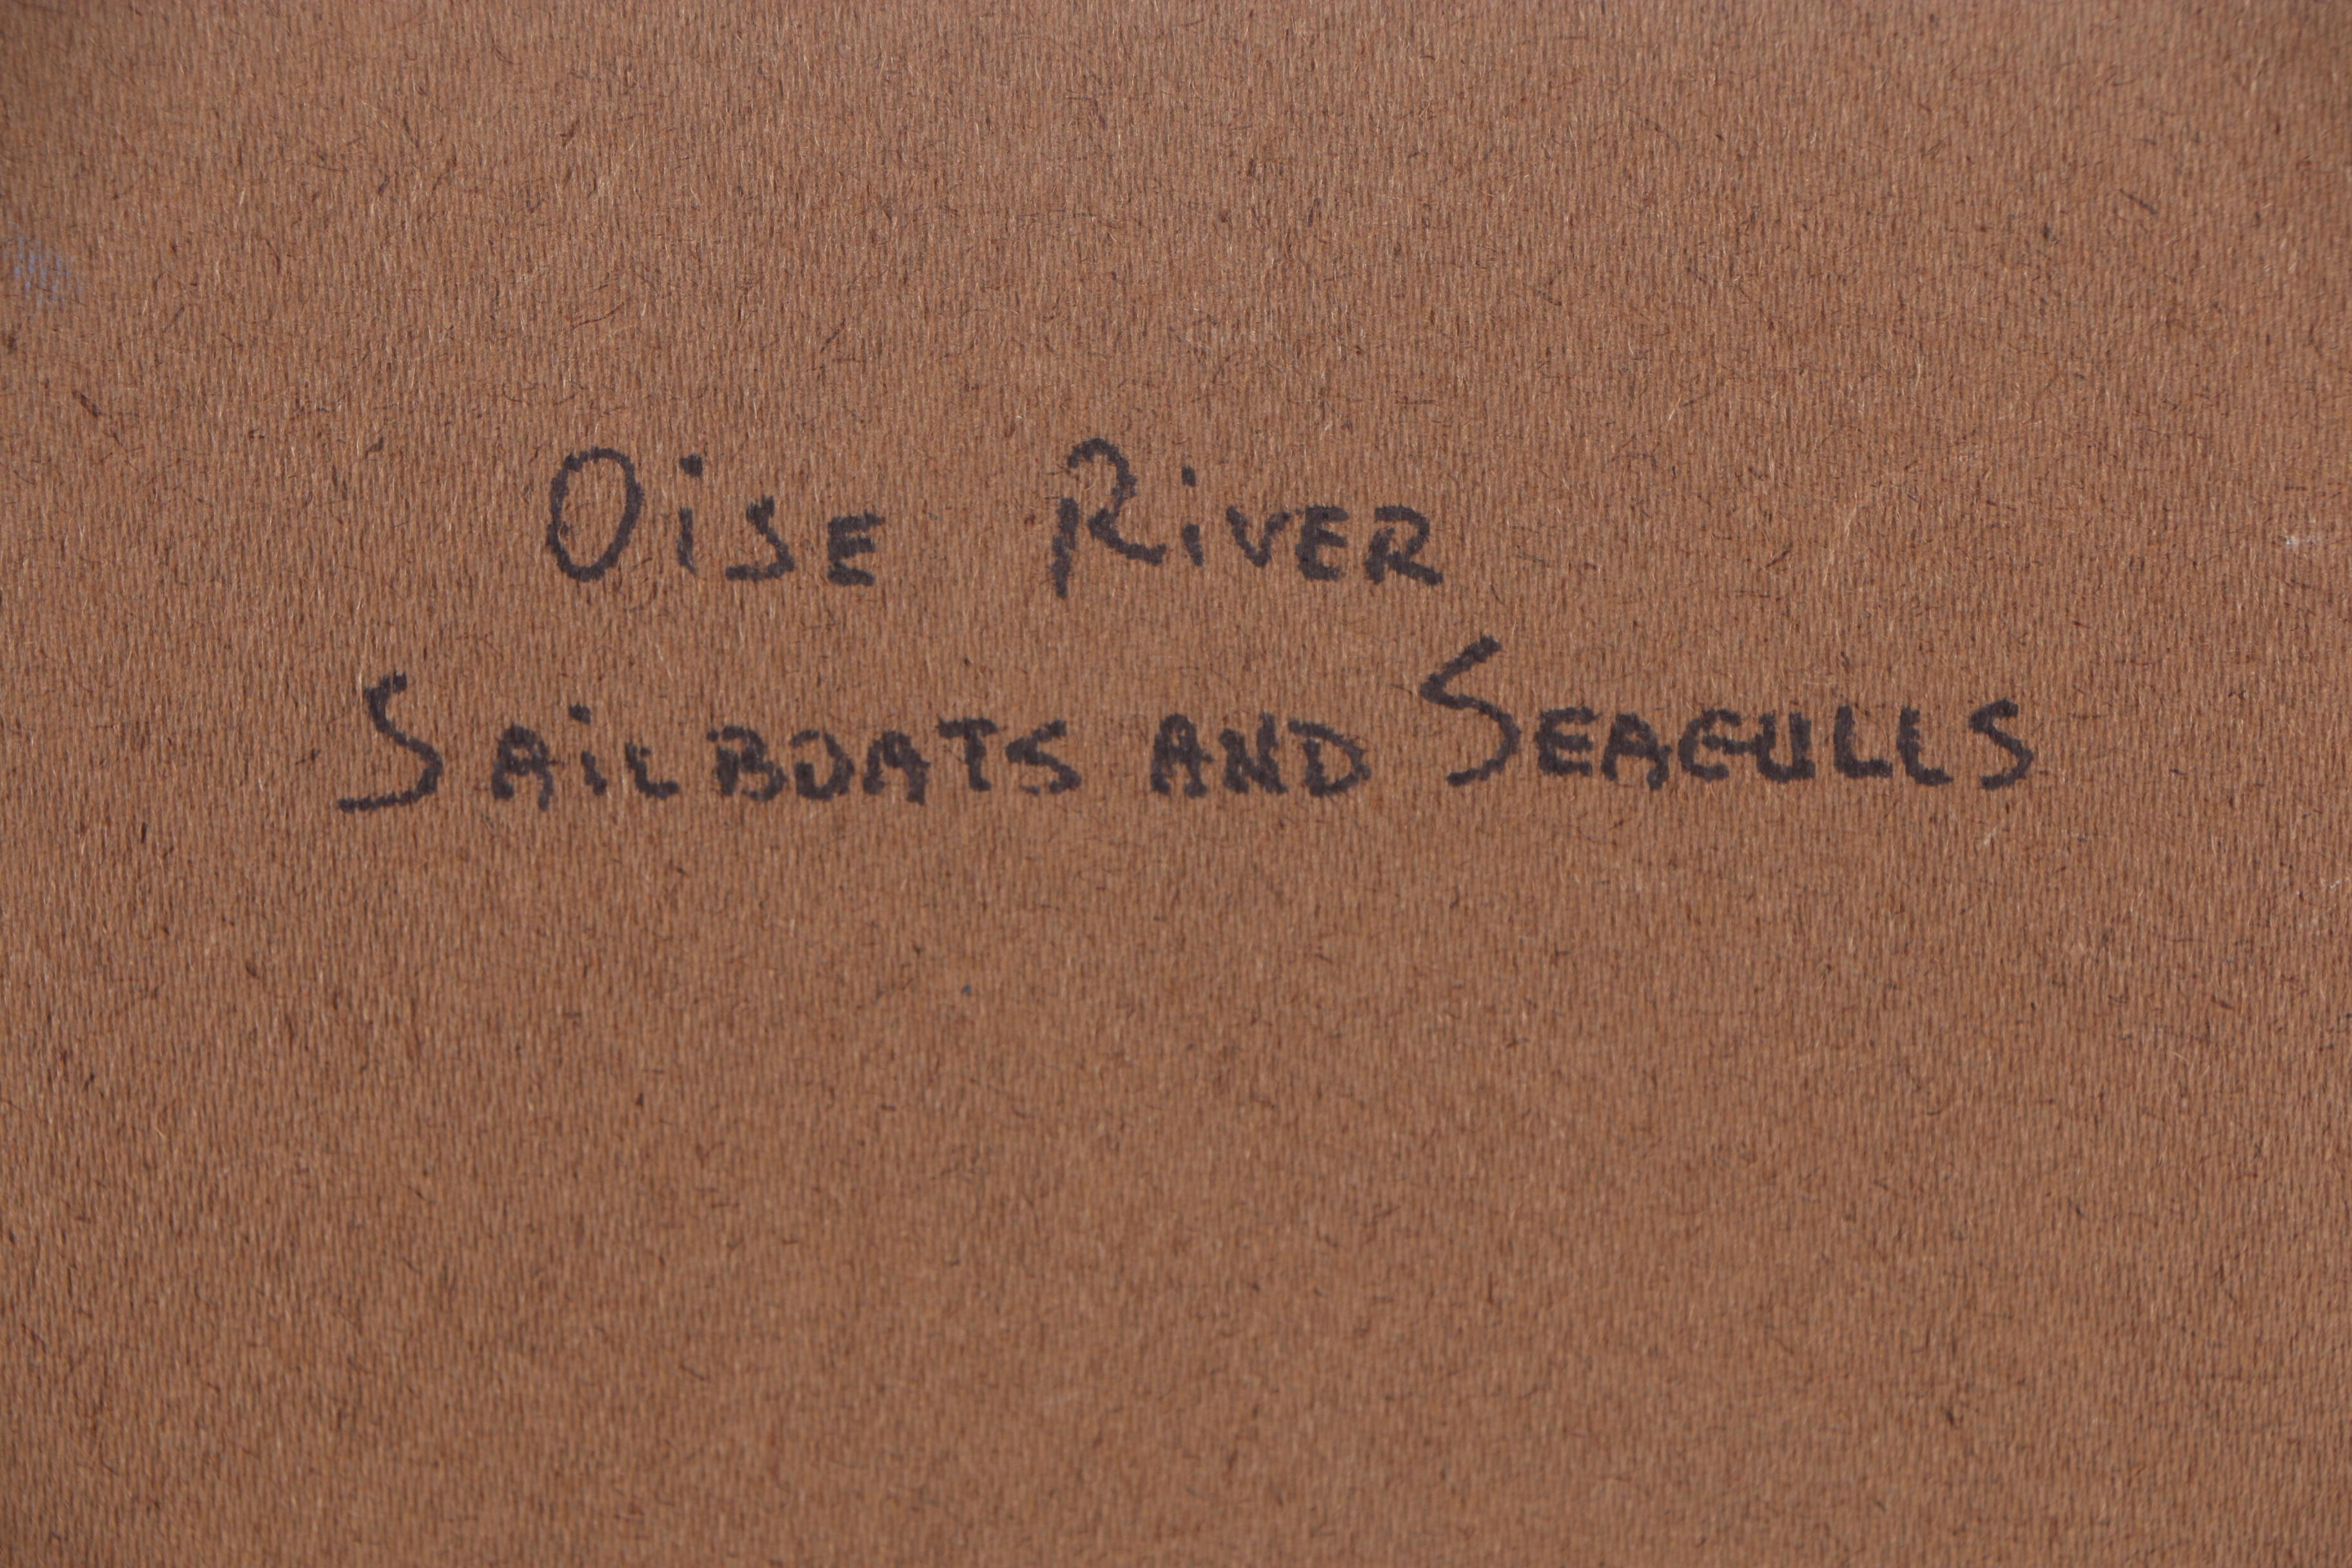 Oise River
Sailboats and Seagulls